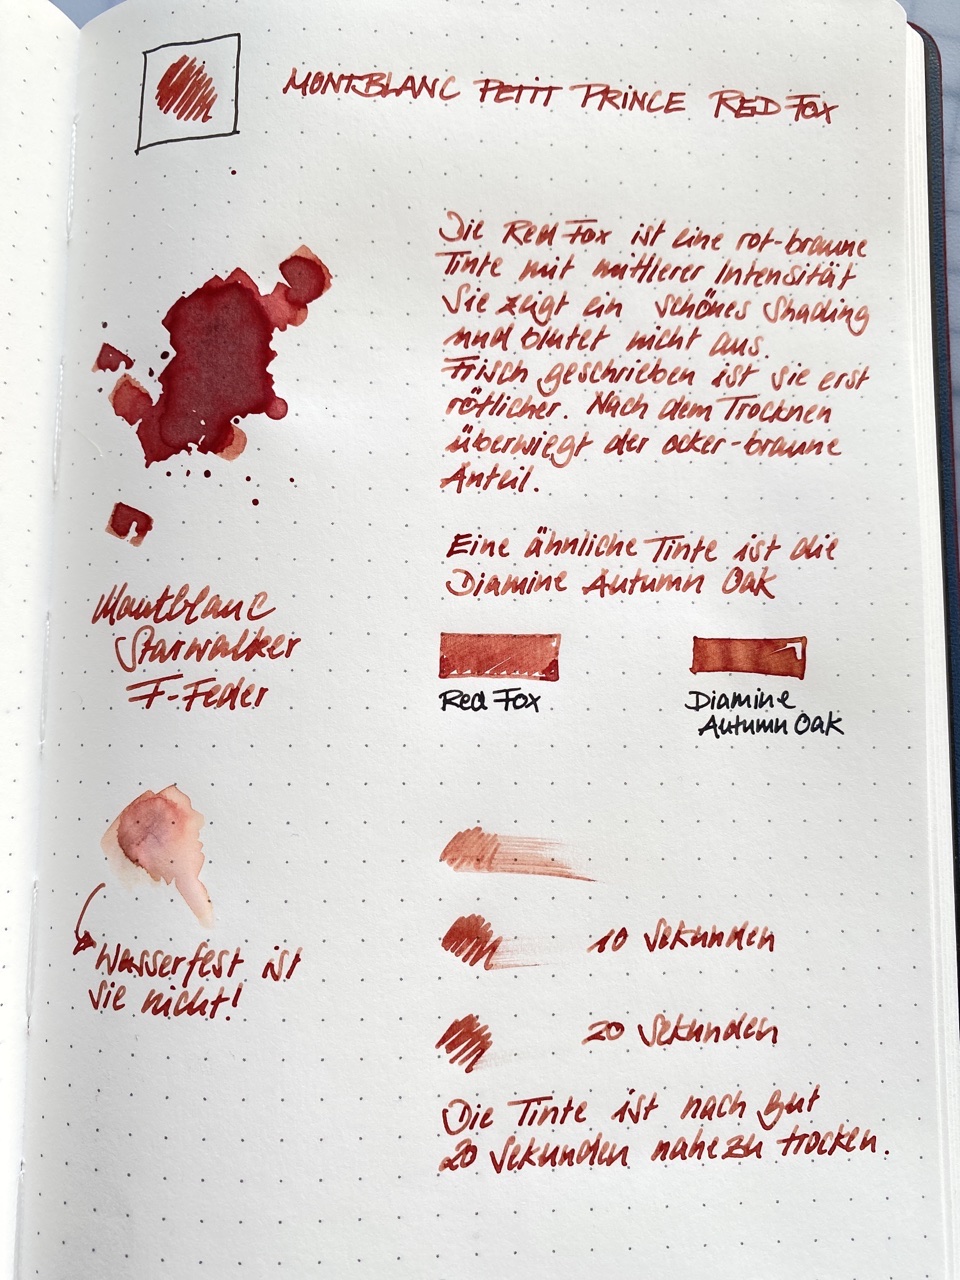 MONTBLANC PETIT PRINCE RED FOX
Die Red Fox ist eine rot-braune
Tinte mit mittlerer Intensität
Sie zeigt ein schönes Shading
und blutet nicht aus.
Frisch geschrieben ist sie erst
rötlicher. Nach dem Trocknen
überwiegt der ocker-braune
Anteil.
Eine ähnliche Tinte ist die
Diamine Autumn Oak
Red Fox
Diamine
Autumn Oak
Montblanc
Starwalker
F-Feder
Wasserfest ist
sie nicht!
10 Sekunden
20 Sekunden
Die Tinte ist nach gut
20 Sekunden nahezu trocken.